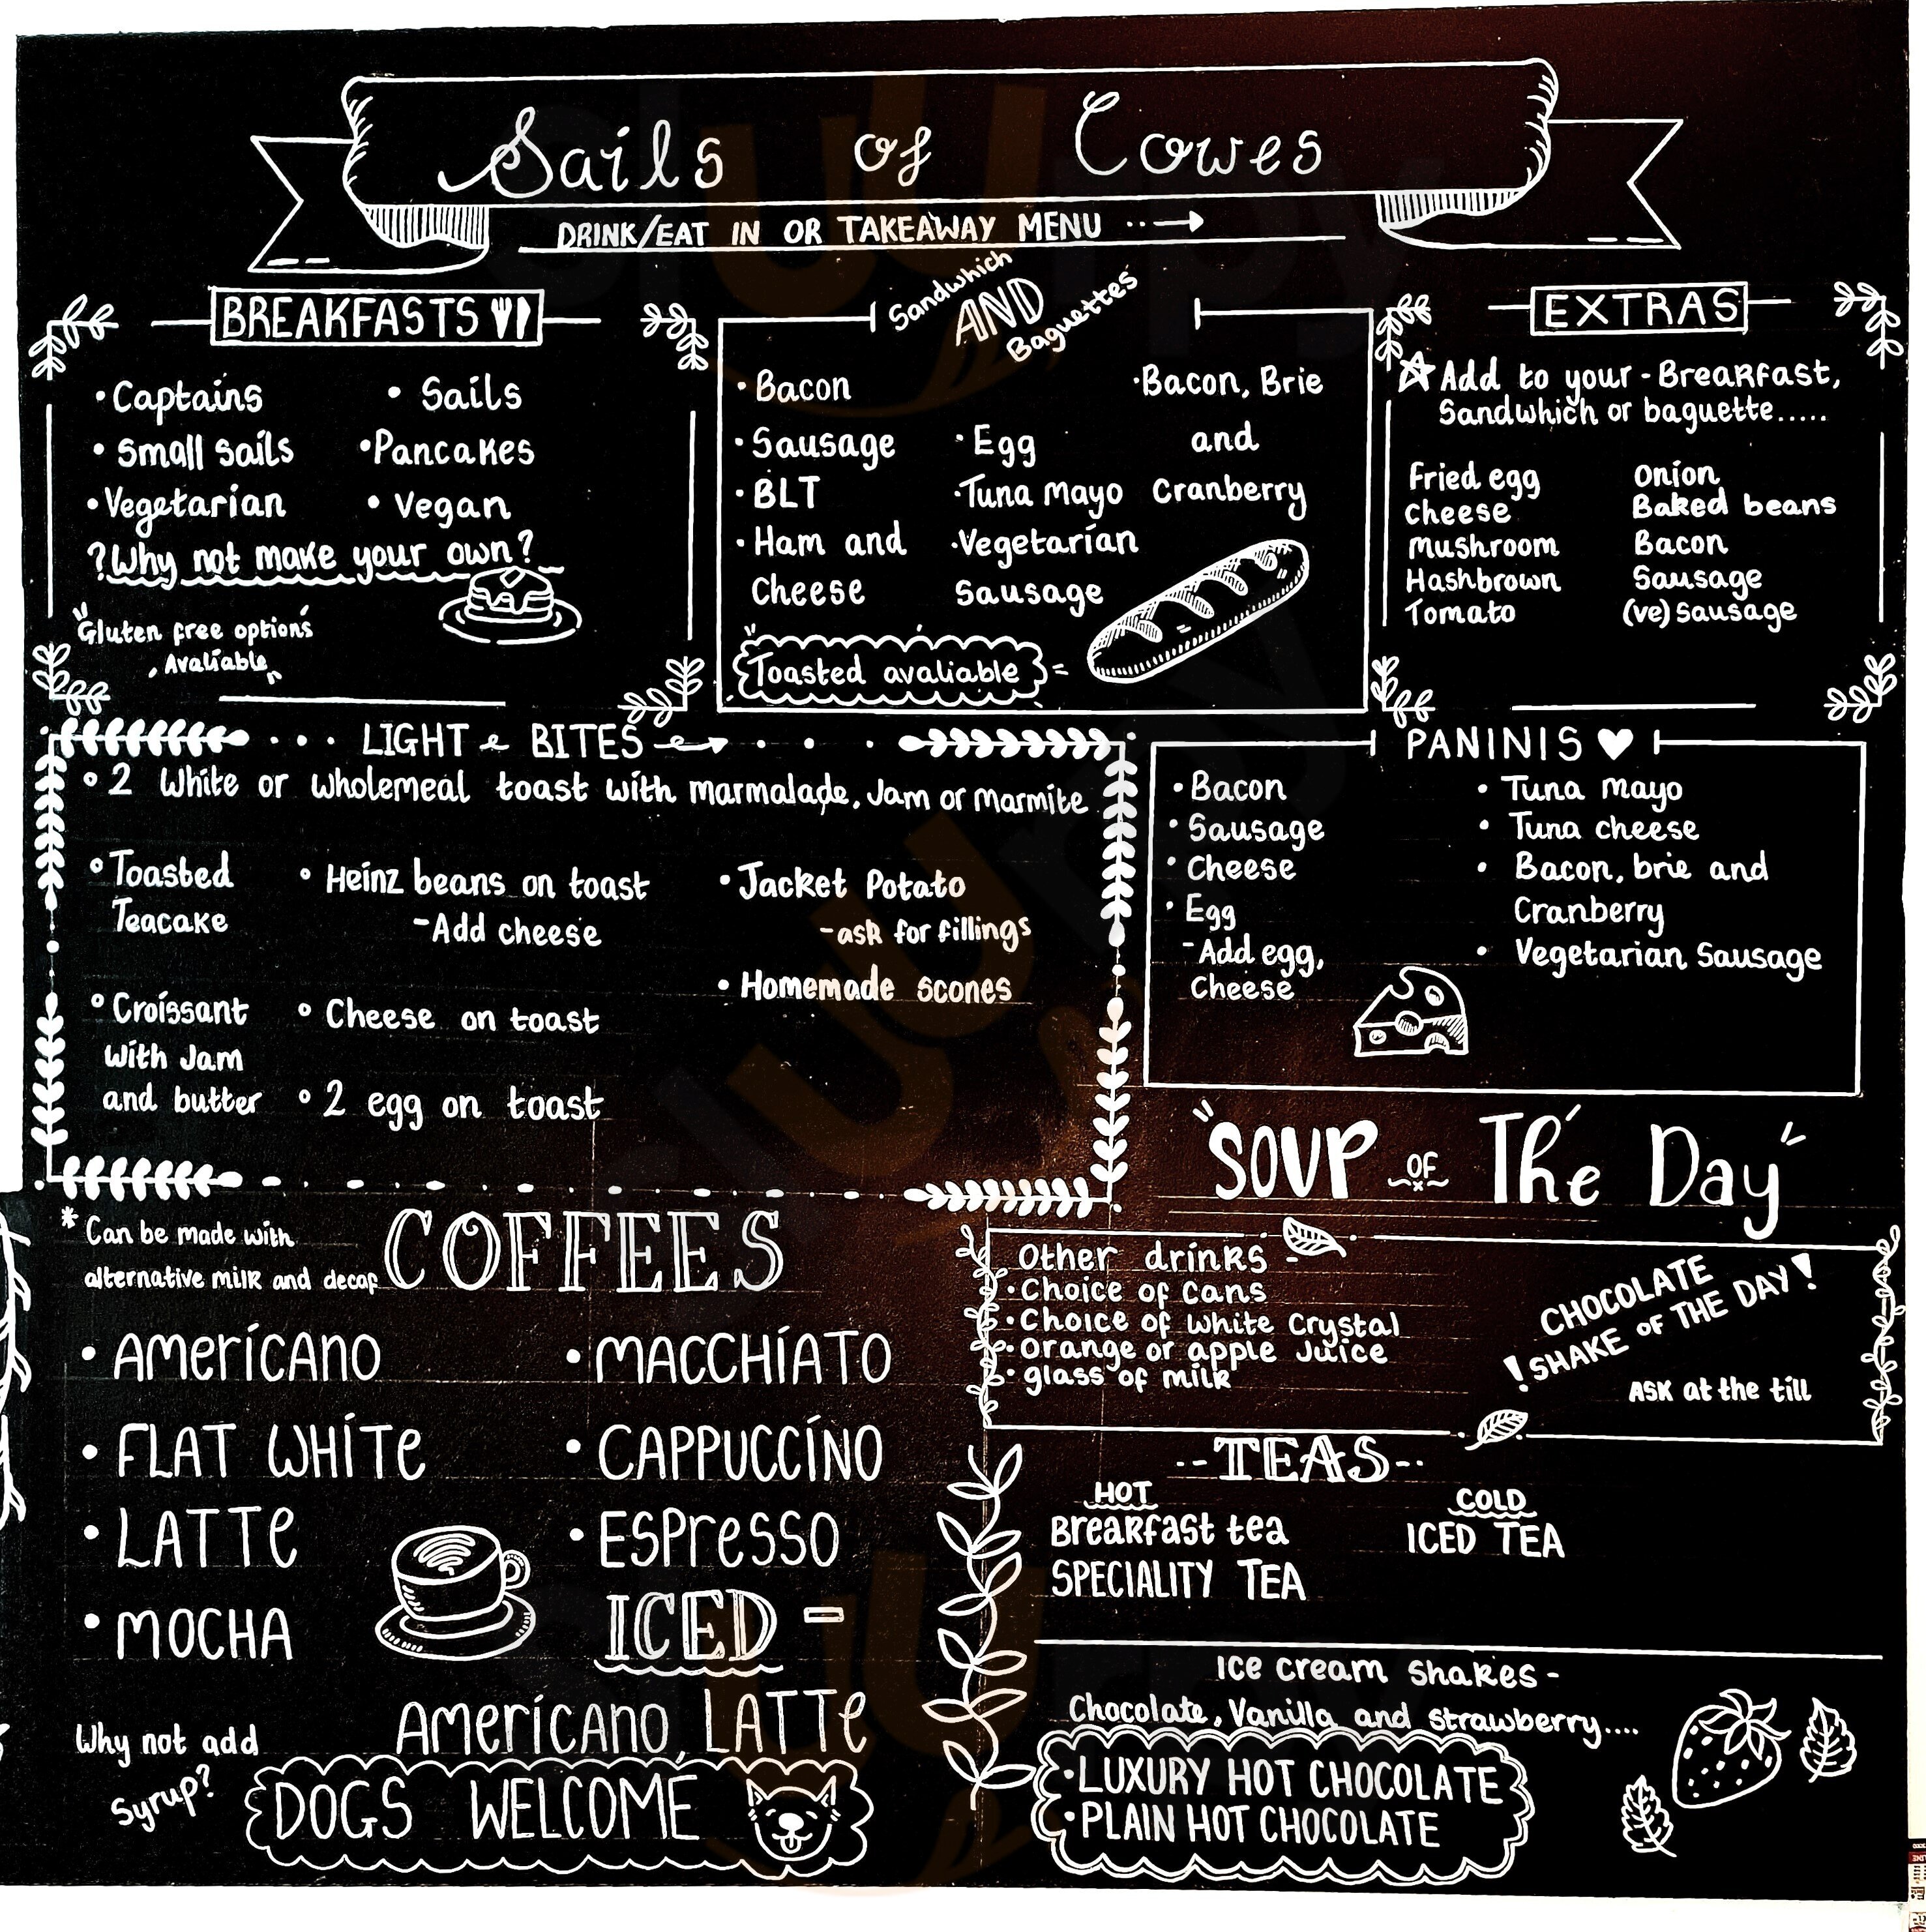 Sails of Cowes
DRINK/EAT IN OR TAKEAWAY MENU
BREAKFASTS
• Captains
• Sails
• Small sails
• Pancakes
• Vegetarian
• Vegan
?Why not make your own?
"Gluten free options
Avaliable"
Sandwhich
AND
Baguettes
• Bacon
• Sausage
• BLT
• Ham and
Cheese
• Egg
• Tuna mayo
• Vegetarian
Sausage
• Bacon, Brie
and
Cranberry
Toasted avaliable =
EXTRAS
Add to your - Breakfast,
Sandwhich or baguette.....
Fried egg
Cheese
Mushroom
Hashbrown
Tomato
Onion
Baked beans
Bacon
Sausage
(ve) sausage
LIGHT & BITES
• 2 White or wholemeal toast with marmalade, Jam or marmite
• Toasted
Teacake
• Croissant
with Jam
and butter
• Heinz beans on toast
- Add cheese
• Cheese on toast
• 2 egg on toast
• Jacket Potato
- ask for fillings
• Homemade scones
PANINIS
• Bacon
• Sausage
• Cheese
• Egg
- Add egg,
Cheese
• Tuna mayo
• Tuna cheese
• Bacon, brie and
Cranberry
• Vegetarian Sausage
"SOUP OF The Day"
* Can be made with
alternative milk and decaf
COFFEES
• Americano
• MACCHIATO
• FLAT WHITE
• CAPPUCCINO
• LATTE
• ESPresso
• MOCHA
ICED -
Americano, LATTe
Why not add
Syrup?
DOGS WELCOME
Other drinks -
• Choice of cans
• Choice of white Crystal
• Orange or apple Juice
• glass of milk
CHOCOLATE
!SHAKE OF THE DAY!
ASK at the till
--TEAS--
HOT
Breakfast tea
SPECIALITY TEA
COLD
ICED TEA
Ice cream shakes -
Chocolate, Vanilla and strawberry....
• LUXURY HOT CHOCOLATE
• PLAIN HOT CHOCOLATE